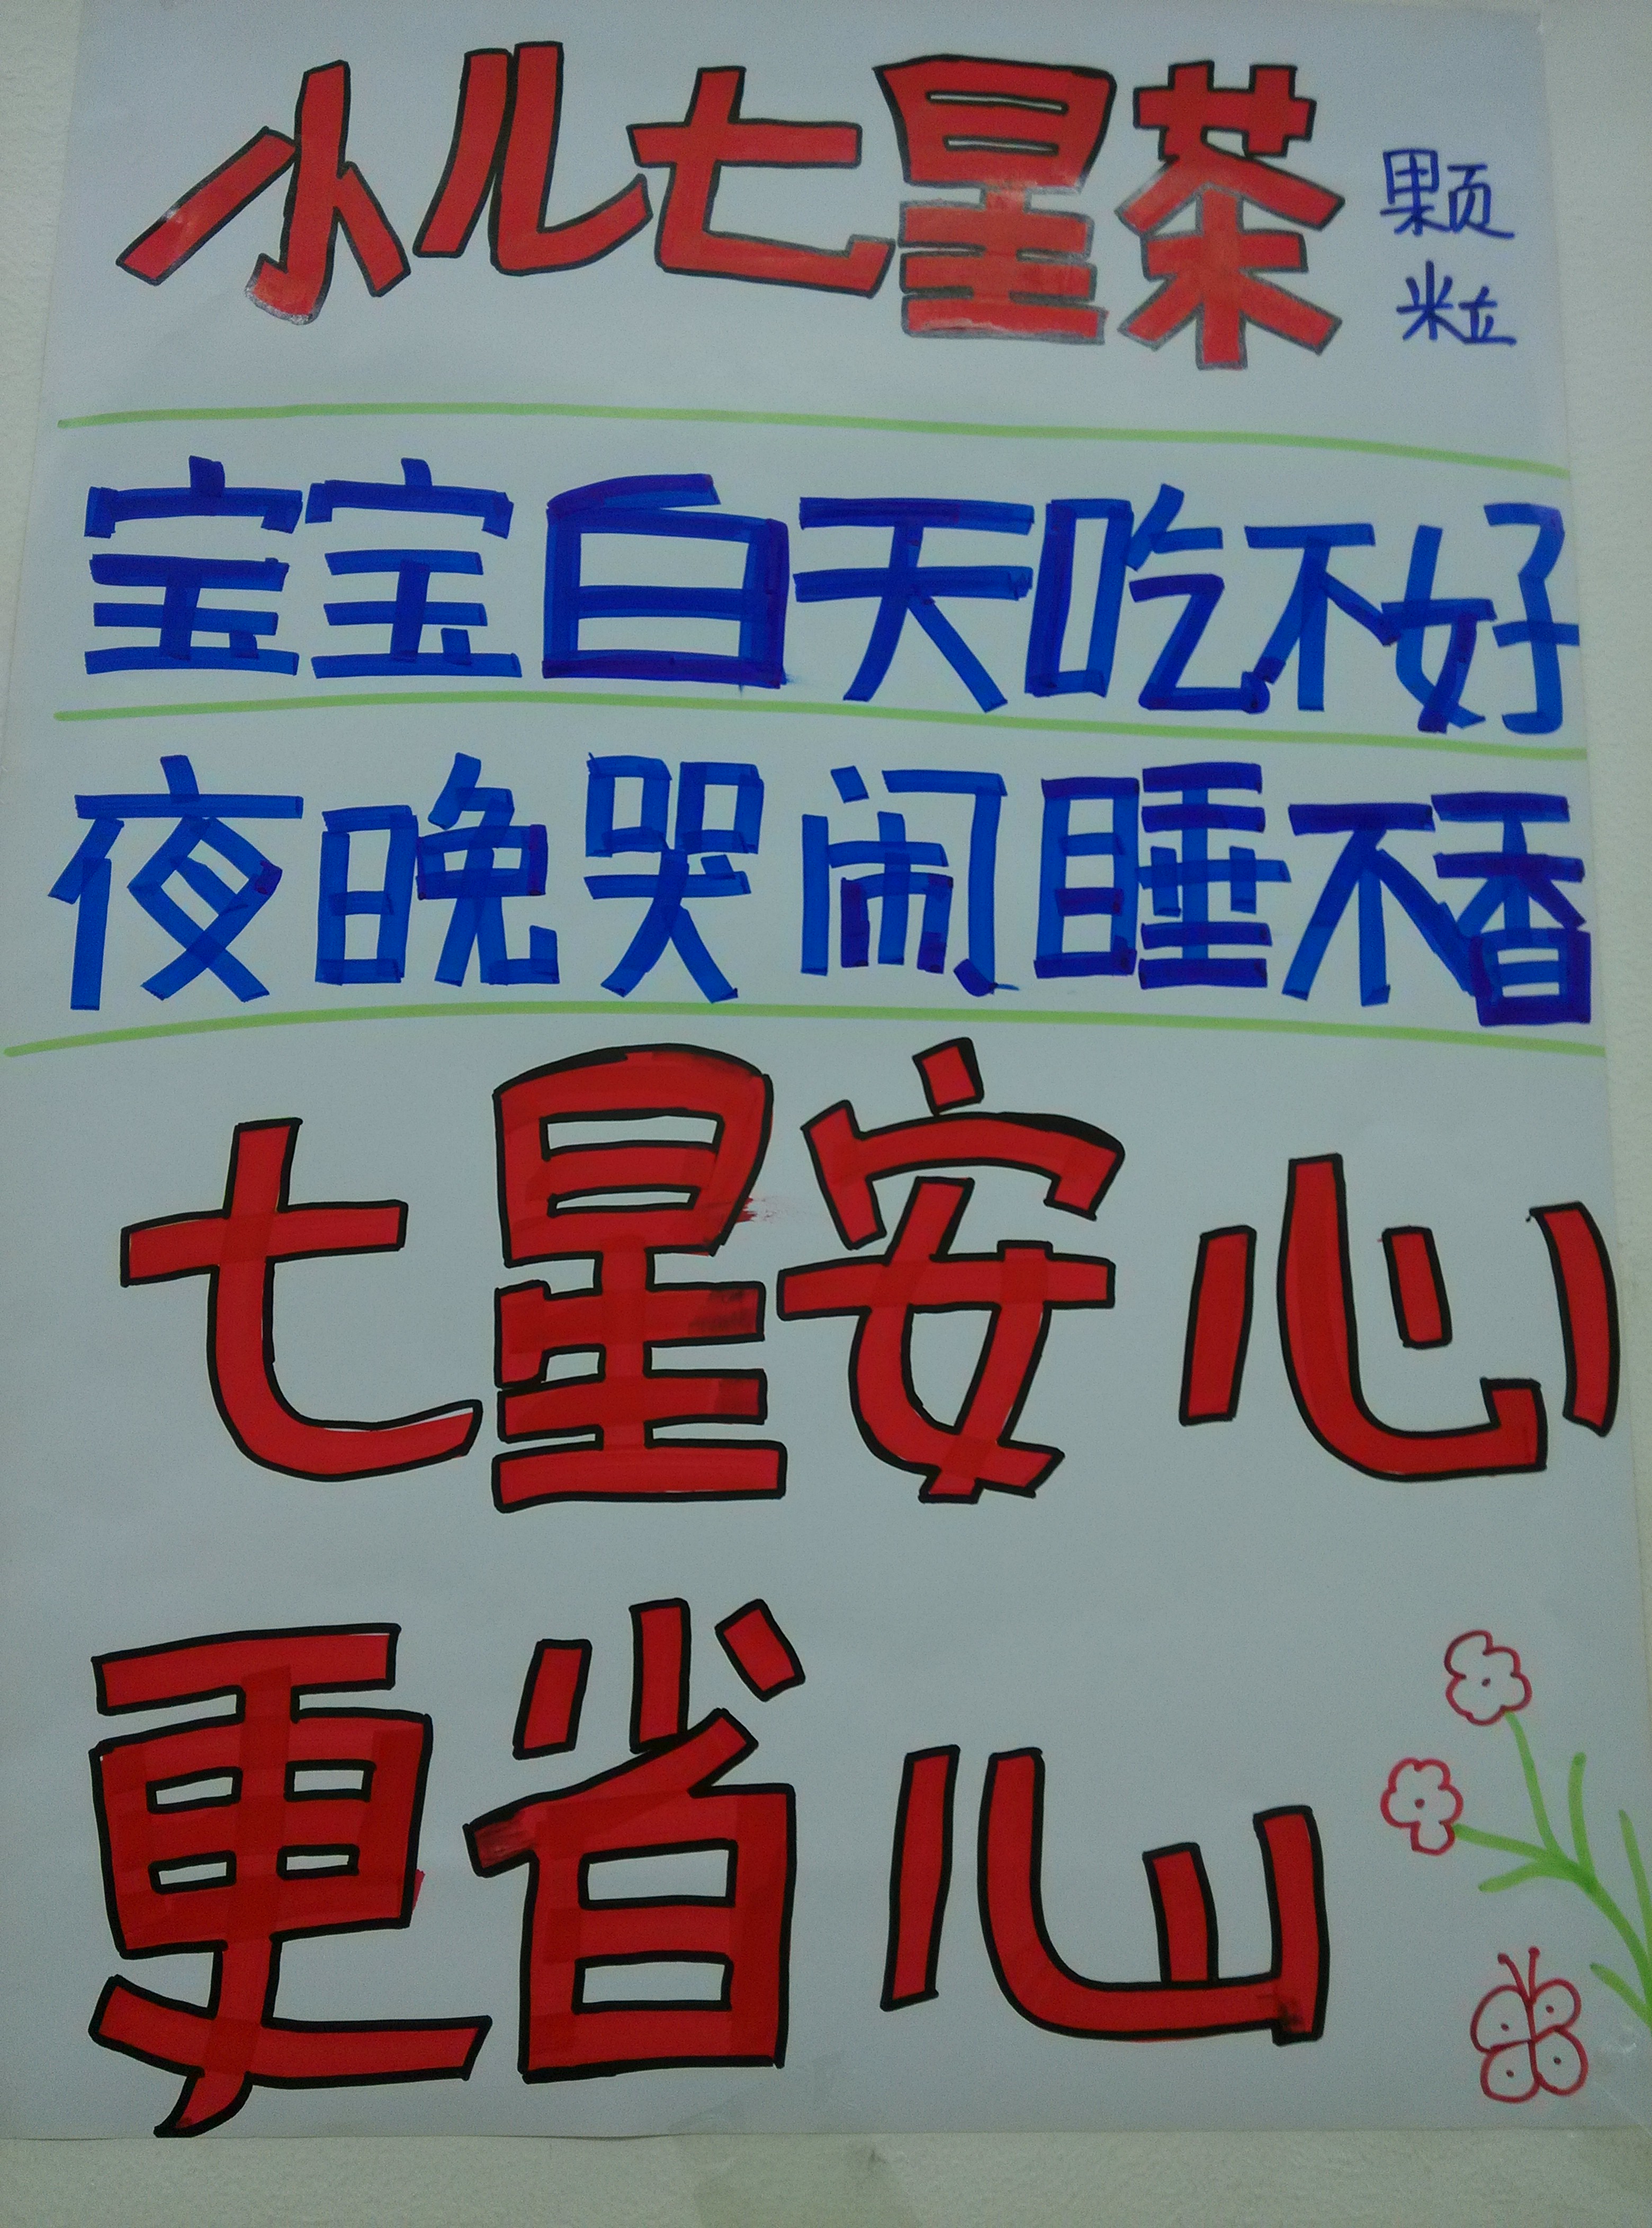 小儿七星茶颗粒
宝宝白天吃不好
夜晚哭闹睡不香
七星安心
更省心